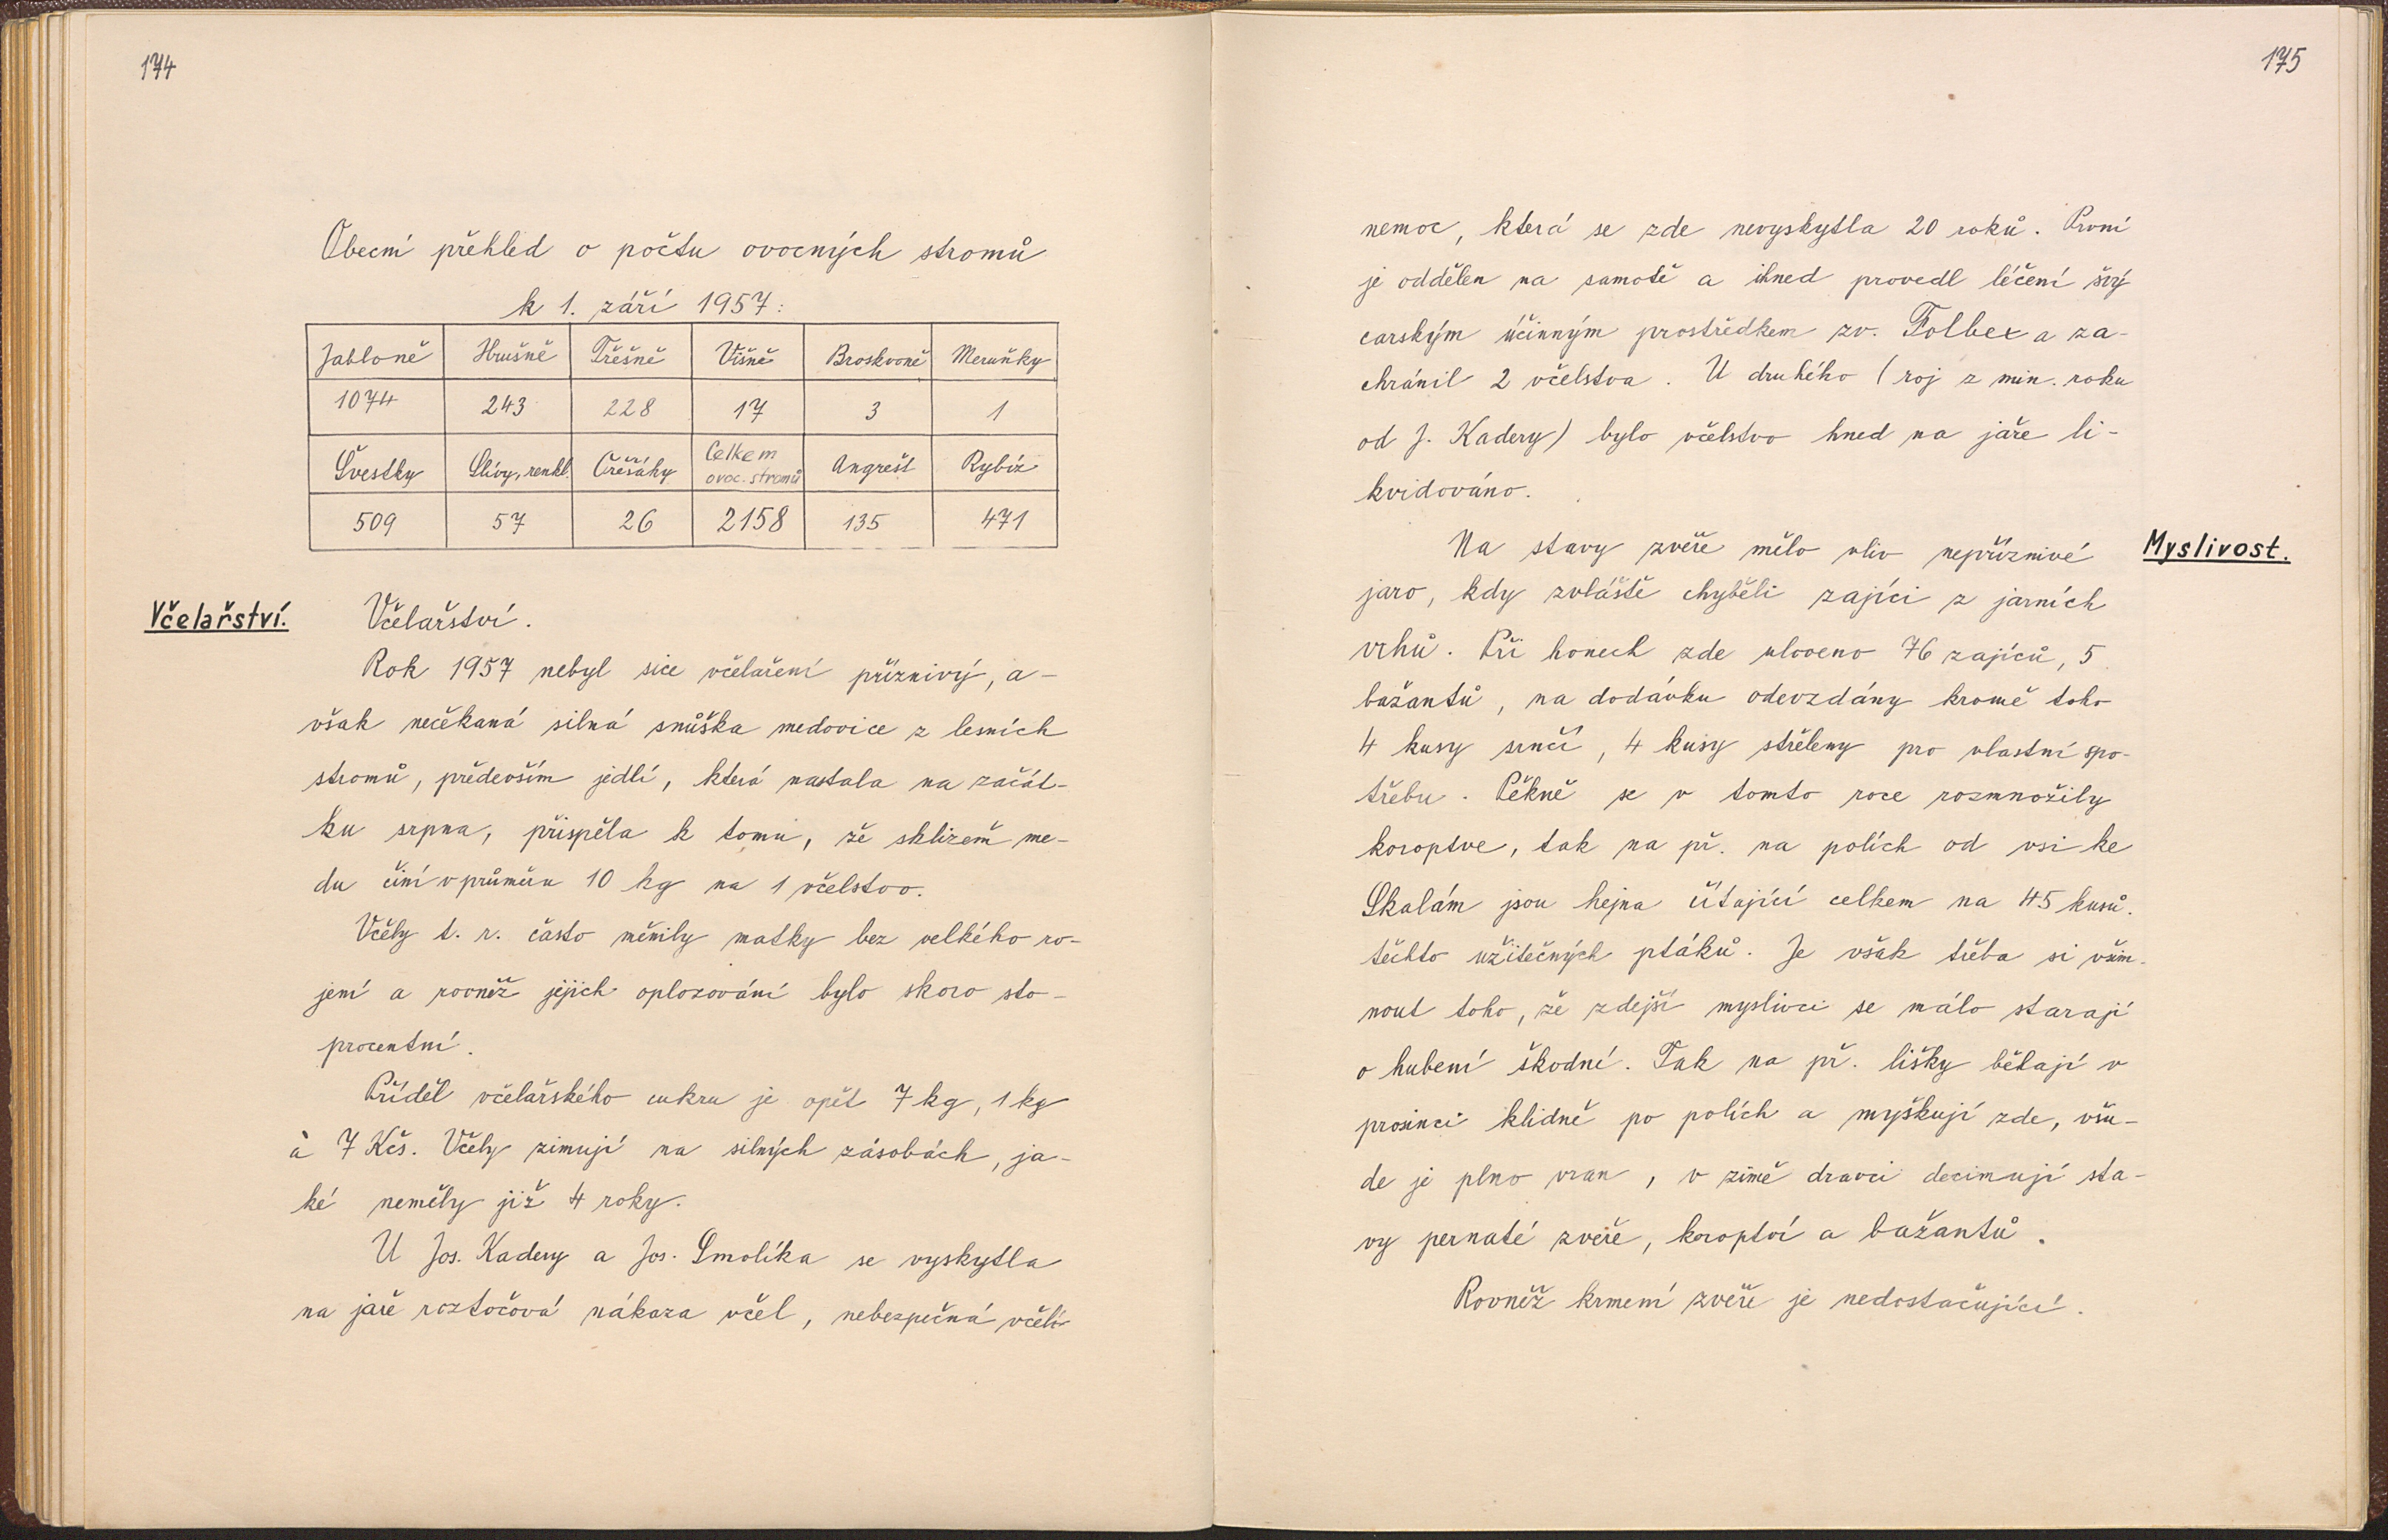 174
Obecní přehled o počtu ovocných stromů
k 1. září 1957:
Jabloně Hrušně Třešně Višně Broskvoně Meruňky
1074 243 228 17 3 1
Švestky Slívy, renkl. Ořešáky Celkem ovoc. stromů Angrešt Rybíz
509 57 26 2158 135 471
Včelařství.
Včelařství.
Rok 1957 nebyl sice včelaření příznivý, a-
však nečekaná silná snůška medovice z lesních
stromů, především jedlí, která nastala na začát-
ku srpna, přispěla k tomu, že sklizeň me-
du činí v průměru 10 kg na 1 včelstvo.
Včely t. r. často měnily matky bez velkého ro-
jení a rovněž jejich oplozování bylo skoro sto-
procentní.
Příděl včelařského cukru je opět 7 kg, 1 kg
à 7 Kčs. Včely zimují na silných zásobách, ja-
ké neměly již 4 roky.
U Jos. Kadery a Jos. Smolíka se vyskytla
na jaře roztočová nákaza včel, nebezpečná včelí
175
nemoc, která se zde nevyskytla 20 roků. První
je oddělen na samotě a ihned provedl léčení švý
carským účinným prostředkem zv. Folbex a za-
chránil 2 včelstva. U druhého (roj z min. roku
od J. Kadery) bylo včelstvo hned na jaře li-
kvidováno.
Myslivost.
Na stavy zvěře mělo vliv nepříznivé
jaro, kdy zvláště chyběli zajíci z jarních
vrhů. Při honech zde uloveno 76 zajíců, 5
bažantů, na dodávku odevzdány kromě toho
4 kusy srnčí, 4 kusy střeleny pro vlastní spo-
třebu. Pěkně se v tomto roce rozmnožily
koroptve, tak na př. na polích od vsi ke
Skalám jsou hejna čítající celkem na 45 kusů.
těchto užitečných ptáků. Je však třeba si všim-
nout toho, že zdejší myslivci se málo starají
o hubení škodné. Tak na př. lišky běhají v
prosinci klidně po polích a myškují zde, všu-
de je plno vran, v zimě dravci decimují sta-
vy pernaté zvěře, koroptví a bažantů.
Rovněž krmení zvěře je nedostačující.